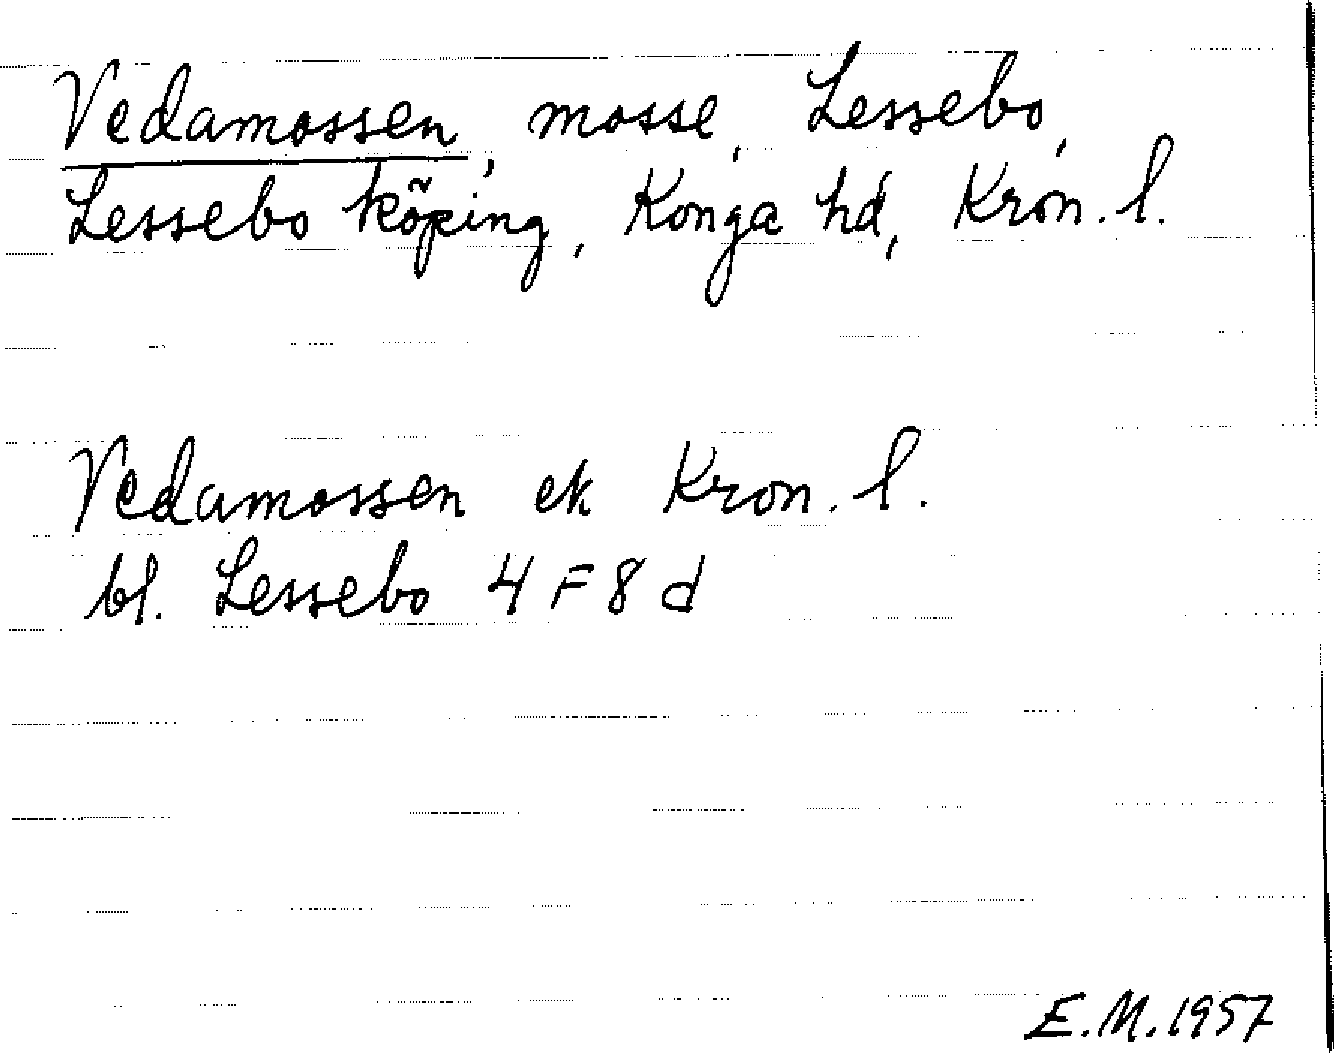 Vedamossen, mosse, Lessebo,
Lessebo köping, Konga hd, Kron. l.
Vedamossen ek Kron. l.
bl. Lessebo 4 F 8 d
E.M. 1957